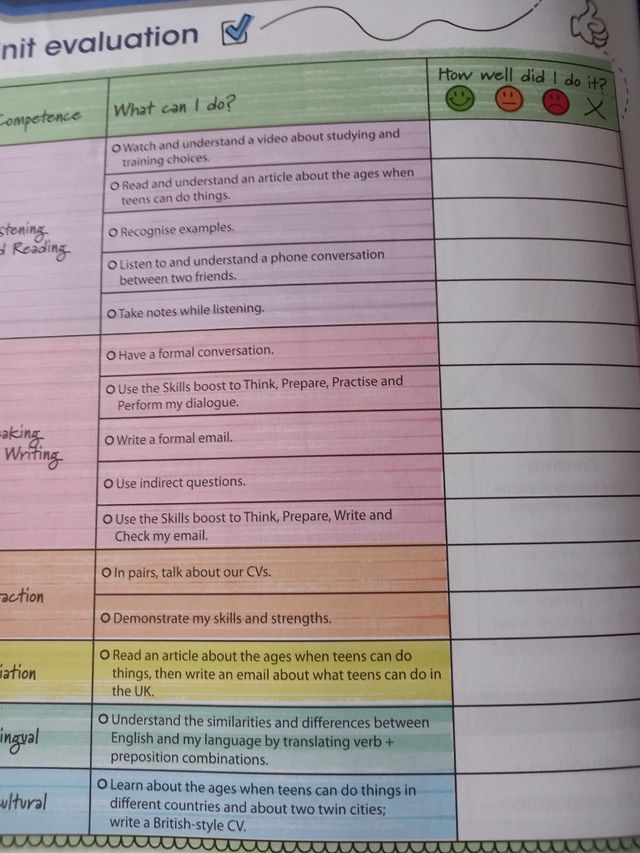 nit evaluation
ompetence
What can I do?
How well did I do it?
Watch and understand a video about studying and
training choices.
Read and understand an article about the ages when
teens can do things.
stening
d Reading
Recognise examples.
Listen to and understand a phone conversation
between two friends.
Take notes while listening.
Have a formal conversation.
Use the Skills boost to Think, Prepare, Practise and
Perform my dialogue.
aking
Writing
Write a formal email.
Use indirect questions.
Use the Skills boost to Think, Prepare, Write and
Check my email.
action
In pairs, talk about our CVs.
Demonstrate my skills and strengths.
iation
Read an article about the ages when teens can do
things, then write an email about what teens can do in
the UK.
ingual
Understand the similarities and differences between
English and my language by translating verb +
preposition combinations.
ultural
Learn about the ages when teens can do things in
different countries and about two twin cities;
write a British-style CV.